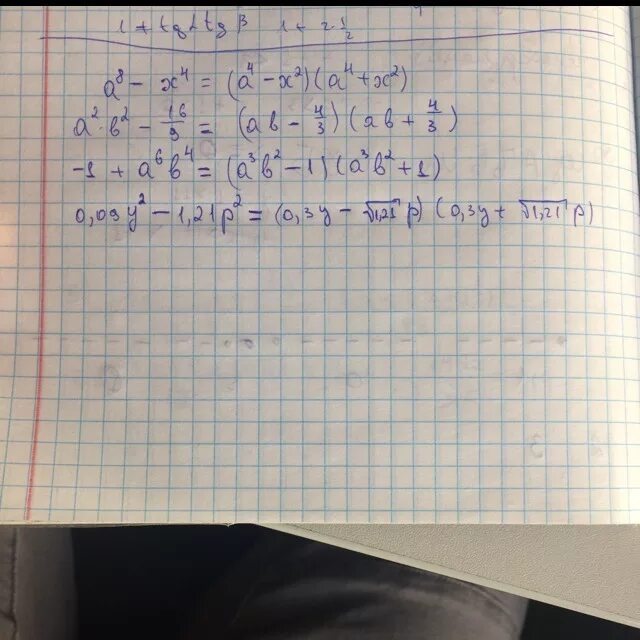 1 + tg α tg β 1 + 2·1/2
a⁸ − x⁴ = (a⁴ − x²)(a⁴ + x²)
a²·b² − 16/9 = (ab − 4/3)(ab + 4/3)
-1 + a⁶b⁴ = (a³b² − 1)(a³b² + 1)
0,09y² − 1,21p² = (0,3y − √1,21 p)(0,3y + √1,21 p)